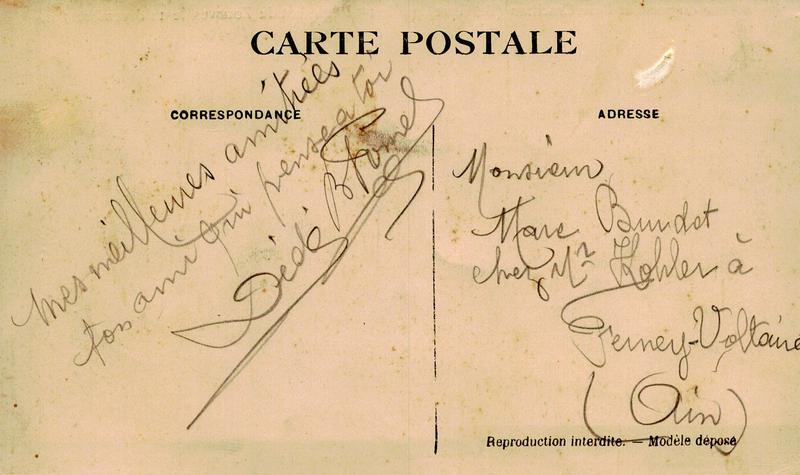 CARTE POSTALE
CORRESPONDANCE
Mes meilleures amitiées
ton ami qui pense a toi
Dédé
ADRESSE
Monsieur
Marc Bundet
chez Mr Kohler à
Ferney-Voltaire
(Ain)
Reproduction interdite. — Modèle déposé